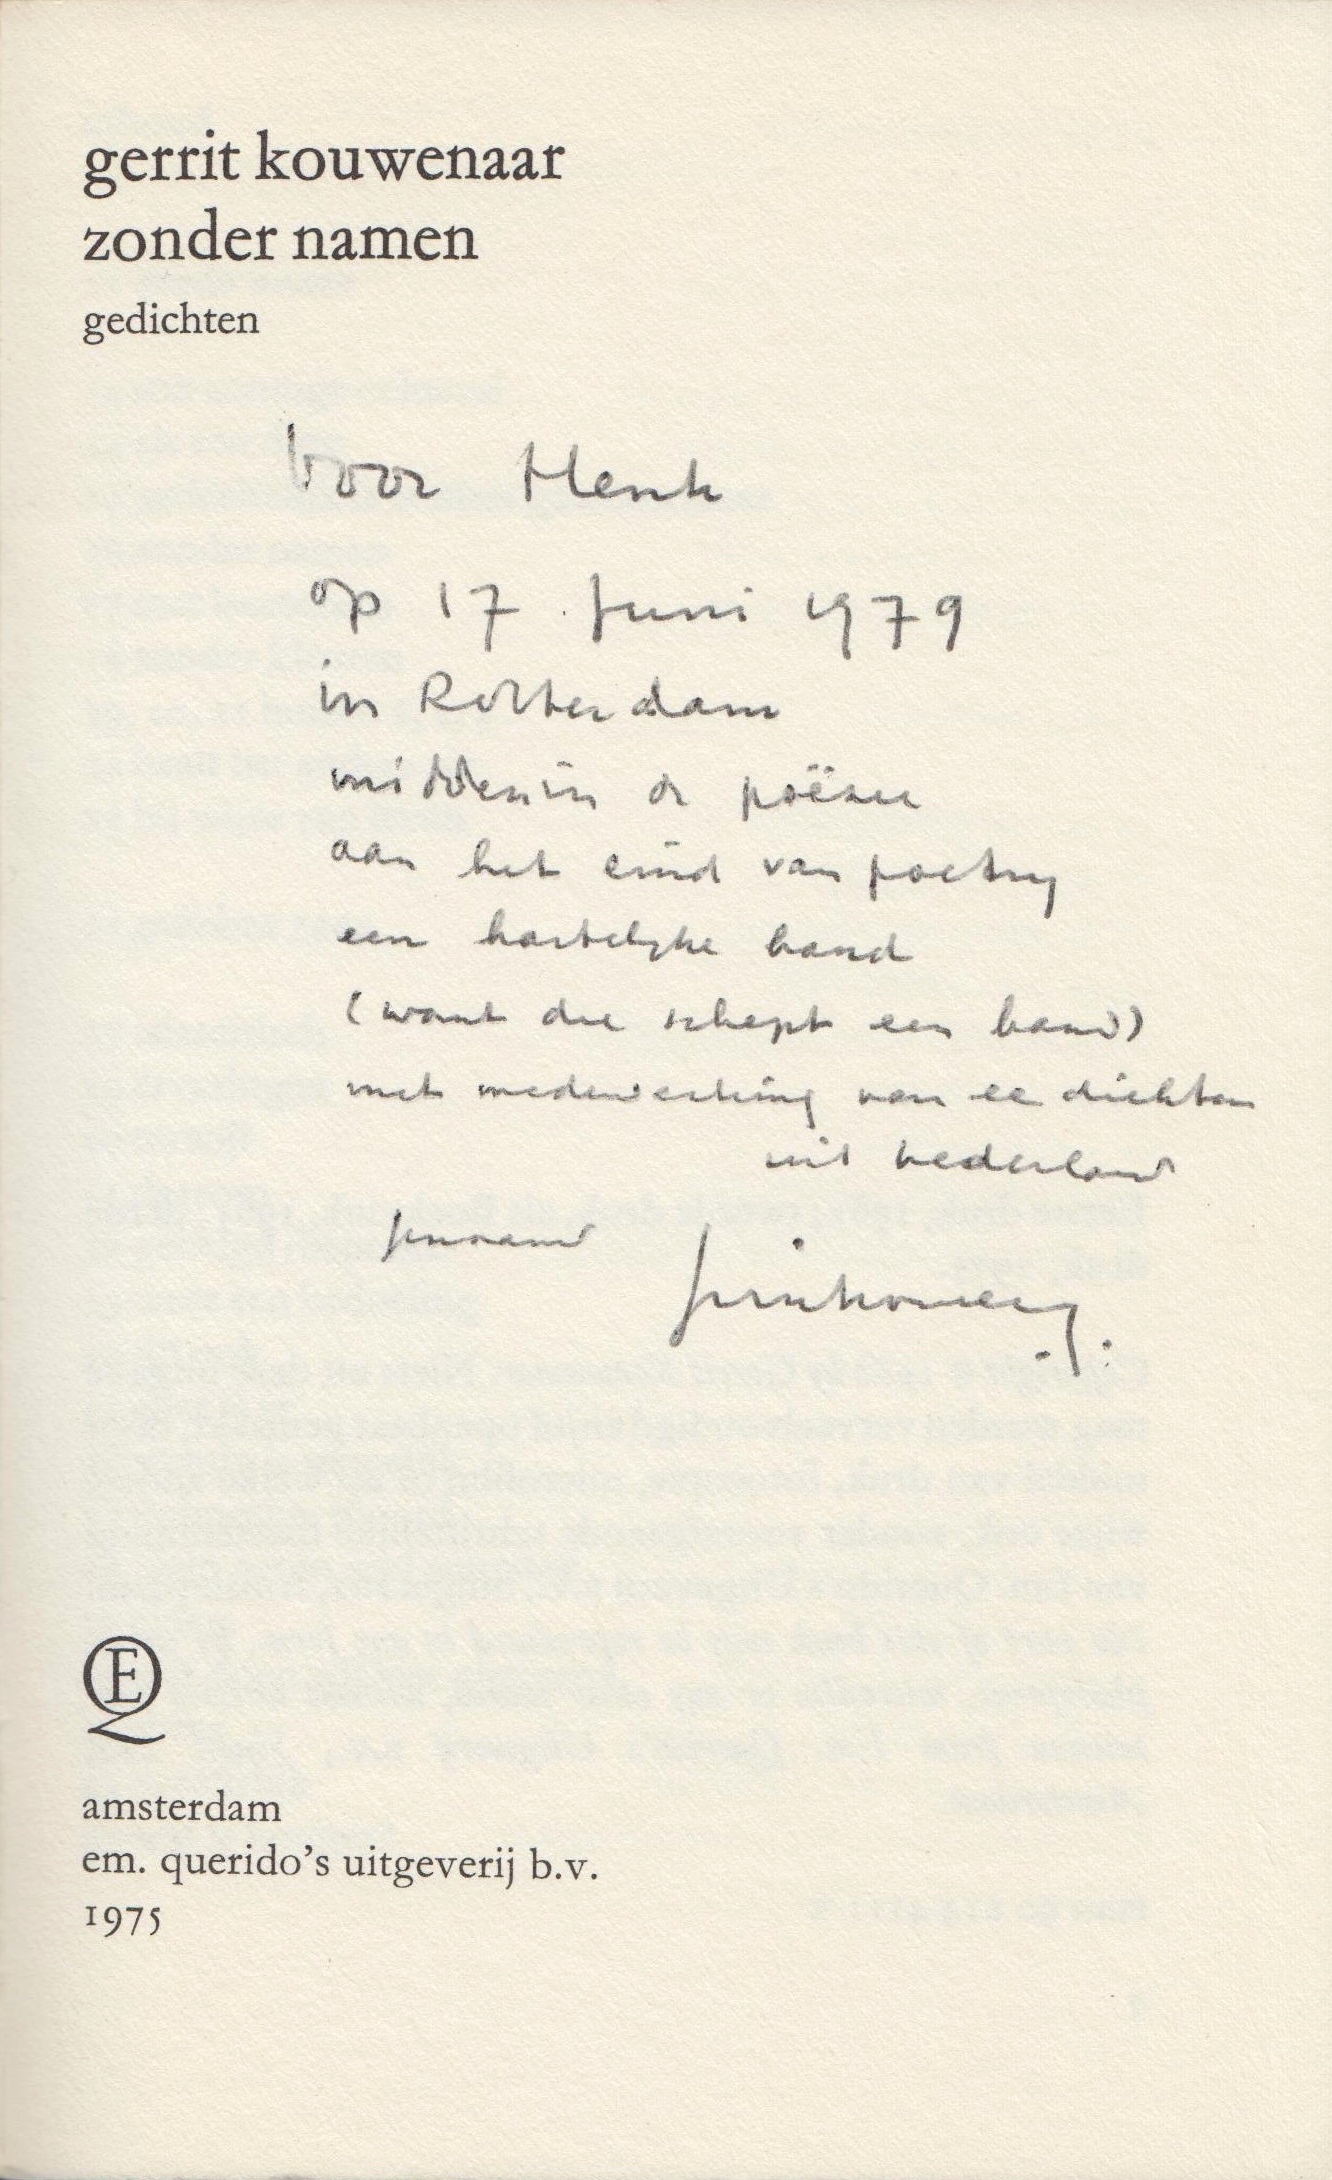 gerrit kouwenaar
zonder namen
gedichten
voor Henk
op 17 Juni 1979
in Rotterdam
middenin de poëzie
aan het eind van poetry
een hartelijke hand
(want die schept een band)
met medewerking van ee dichter
uit nederland
EQ
amsterdam
em. querido's uitgeverij b.v.
1975